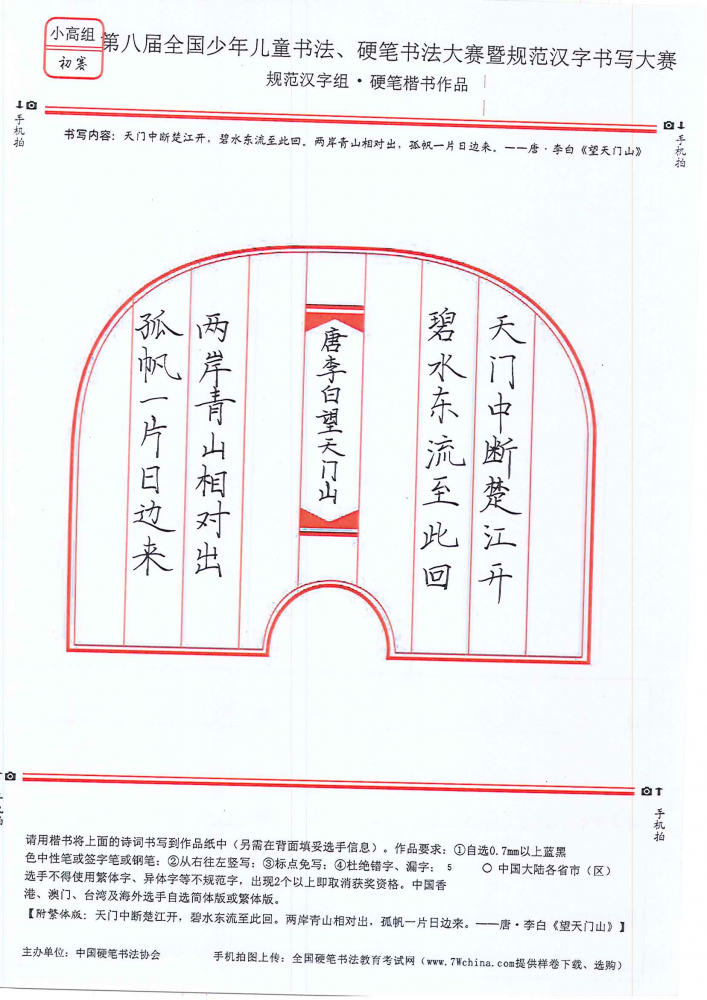 小高组
初赛
第八届全国少年儿童书法、硬笔书法大赛暨规范汉字书写大赛
规范汉字组·硬笔楷书作品
手机拍
手机拍
书写内容：天门中断楚江开，碧水东流至此回。两岸青山相对出，孤帆一片日边来。——唐·李白《望天门山》
天门中断楚江开
碧水东流至此回
唐李白望天门山
两岸青山相对出
孤帆一片日边来
手机拍
请用楷书将上面的诗词书写到作品纸中（另需在背面填妥选手信息）。作品要求：①自选0.7mm以上蓝黑
色中性笔或签字笔或钢笔；②从右往左竖写；③标点免写；④杜绝错字、漏字； 5 ○ 中国大陆各省市（区）
选手不得使用繁体字、异体字等不规范字，出现2个以上即取消获奖资格。中国香
港、澳门、台湾及海外选手自选简体版或繁体版。
【附繁体版：天门中断楚江开，碧水东流至此回。两岸青山相对出，孤帆一片日边来。——唐·李白《望天门山》】
主办单位：中国硬笔书法协会 手机拍图上传：全国硬笔书法教育考试网（www.7Wchina.com提供样卷下载、选购）